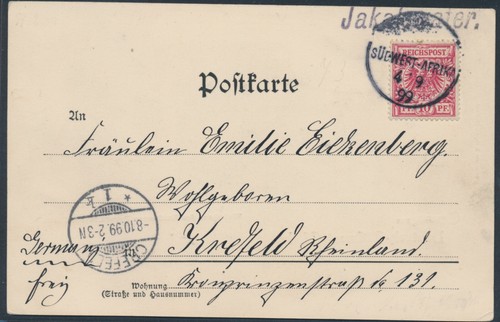 Jakalswater.
REICHSPOST
10 PF.
SÜDWEST-AFRIKA
4 9
99
Postkarte
An
Fräulein Emilie Eickenberg.
Wohlgeboren
* 1 k
-8.10.99.2-3N
CREFELD
Germany Krefeld Rheinland.
frei
Wohnung Kronprinzenstraße No 131.
(Straße und Hausnummer)